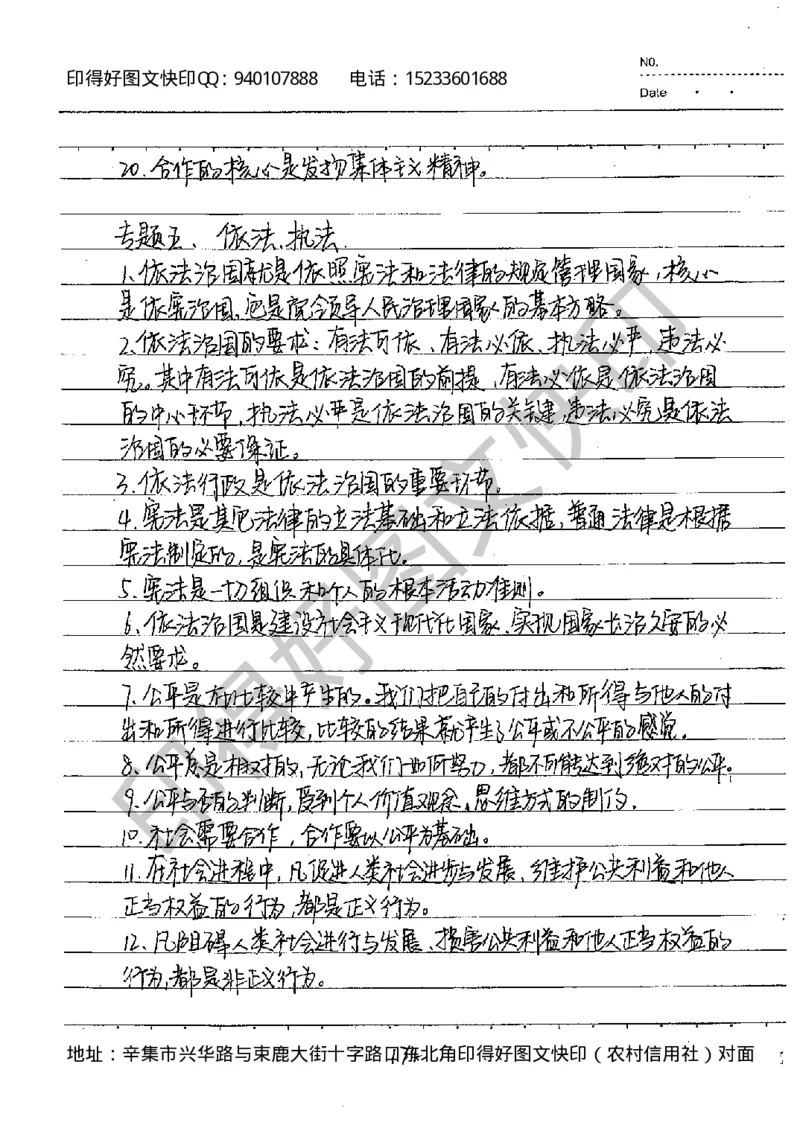 印得好图文快印QQ：940107888 电话：15233601688
NO.
Date
20.合作的核心是发扬集体主义精神。
专题五、依法、执法、
1.依法治国就是依照宪法和法律的规定管理国家，核心
是依宪治国。它是党领导人民治理国家的基本方略。
2.依法治国的要求：有法可依、有法必依、执法必严、违法必
究。其中有法可依是依法治国的前提，有法必依是依法治国
的中心环节，执法必严是依法治国的关键，违法必究是依法
治国的必要保证。
3.依法行政是依法治国的重要环节。
4.宪法是其他法律的立法基础和立法依据，普通法律是根据
宪法制定的，是宪法的具体化。
5.宪法是一切组织和个人的根本活动准则。
6.依法治国是建设社会主义现代化国家、实现国家长治久安的必
然要求。
7.公平是在比较中产生的。我们把自己的付出和所得与他人的付
出和所得进行比较，比较的结果就产生了公平或不公平的感觉。
8.公平总是相对的，无论我们如何努力，都不可能达到绝对的公平。
9.公平与否的判断，受到个人价值观念、思维方式的制约。
10.社会需要合作，合作要以公平为基础。
11.在社会进程中，凡促进人类社会进步与发展、维护公共利益和他人
正当权益的行为，都是正义行为。
12.凡阻碍人类社会进行与发展、损害公共利益和他人正当权益的
行为，都是非正义行为。
印得好图文快印
地址：辛集市兴华路与束鹿大街十字路口东北角印得好图文快印（农村信用社）对面